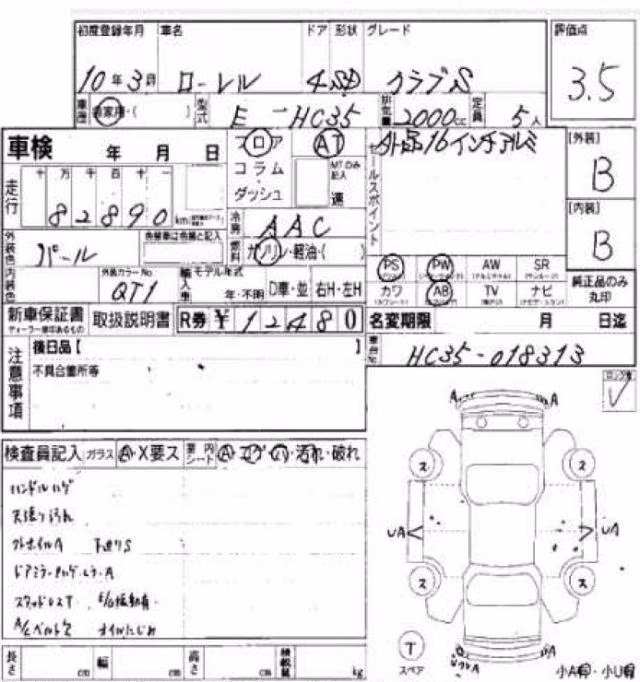 初度登録年月 車名 ドア 形状 グレード 評価点
10年3月 ローレル 4 SD クラブS 3.5
車歴 自家用・( ) 型式 E-HC35 排気量 2000cc 定員 5人
車検 年 月 日 フロア AT 外品16インチアルミ [外装]
走行 十 万 千 百 十 一 コラム MTのみ記入 セールスポイント B
82890 km ダッシュ 速 [内装]
冷房 AAC B
外装色 パール 色替車は色番と記入 燃料 ガソリン・軽油・( ) PS PW AW SR
内装色 外装カラーNo. QT1 輸入車 モデル年式 年・不明 D車・並 右H・左H カワ AB TV ナビ 純正品のみ丸印
新車保証書 取扱説明書 R券 ¥12480 名変期限 月 日迄
ディーラー車印あるもの
注意事項 後日品【 】 車台No HC35-018313
不具合箇所等
検査員記入 ガラス A・X要ス 内 シート A・コゲ・ハ・汚れ・破れ
ハンドルハゲ
天張り汚れ
A 下廻りS
ドアミラー A
A/Cベルト オイルにじみ
長さ cm 幅 cm 高さ cm 積載量 kg
A A
ス ス
UA UA
ス ス
T スペア A A
小A有・小U有